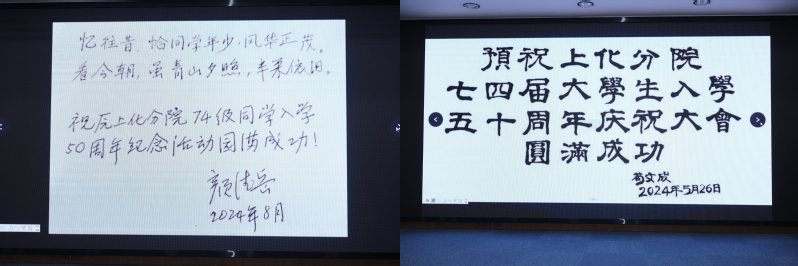 忆往昔，恰同学年少，风华正茂。
看今朝，虽青山夕照，丰采依旧。
祝原上化分院74级同学入学
50周年纪念活动圆满成功！
颜德岳
2024年8月
預祝上化分院
七四届大學生入學
五十周年庆祝大會
圓滿成功
苟文成
2024年5月26日